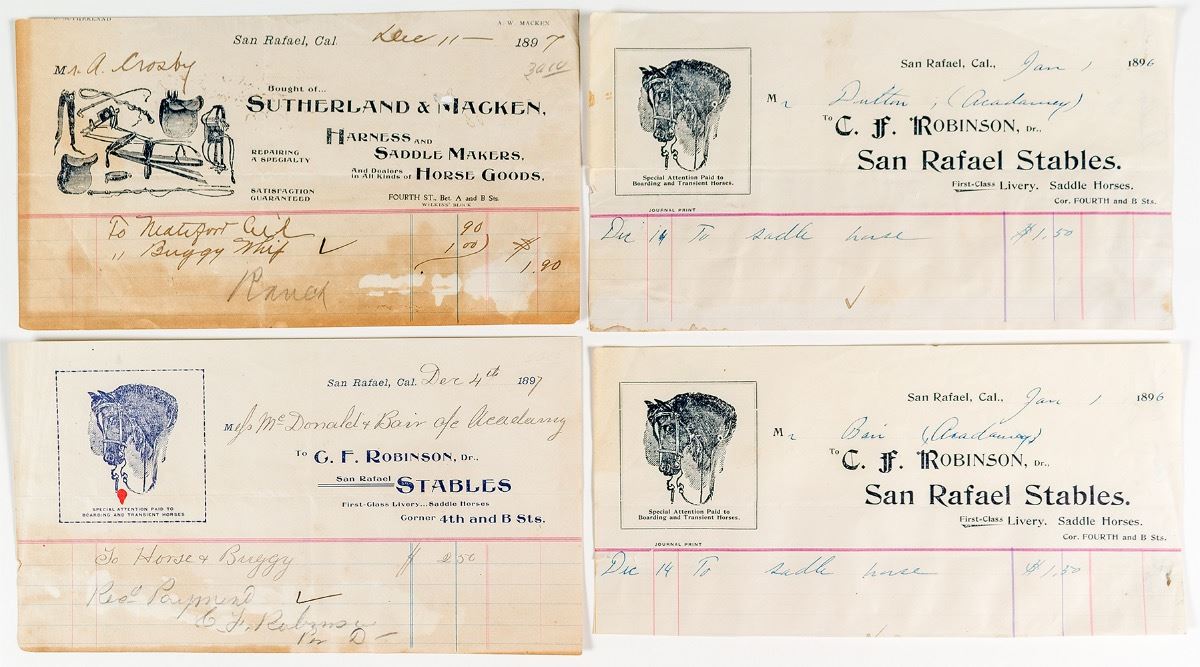 A. W. MACKEN
San Rafael, Cal. Dec 11 — 1897
Mr. A. Crosby
Bought of...
SUTHERLAND & MACKEN,
HARNESS AND
SADDLE MAKERS,
REPAIRING
A SPECIALTY
And Dealers
in All Kinds of HORSE GOODS,
SATISFACTION
GUARANTEED
FOURTH ST., Bet. A and B Sts.
WILKINS' BLOCK
To Neatsfoot Oil 90
" Buggy Whip 1.00 $
1.90
Ranch
San Rafael, Cal., Jan 1 1896
Mr Dutton, (Acadamey)
To C. F. ROBINSON, Dr.,
San Rafael Stables.
First-Class Livery. Saddle Horses.
Cor. FOURTH and B Sts.
Special Attention Paid to
Boarding and Transient Horses.
JOURNAL PRINT
Dec 14 To sadle horse $1.50
San Rafael, Cal. Dec 4th 1897
Mess McDonald & Bair a/c Acadamy
To C. F. ROBINSON, Dr.,
San Rafael STABLES
First-Class Livery...Saddle Horses
Corner 4th and B Sts.
SPECIAL ATTENTION PAID TO
BOARDING AND TRANSIENT HORSES
To Horse & Buggy $ 2.50
Recd Payment
C. F. Robinson
Per D—
San Rafael, Cal., Jan 1 1896
Mr Bair (Acadamey)
To C. F. ROBINSON, Dr.,
San Rafael Stables.
First-Class Livery. Saddle Horses.
Cor. FOURTH and B Sts.
Special Attention Paid to
Boarding and Transient Horses.
JOURNAL PRINT
Dec 14 To sadle horse $1.50